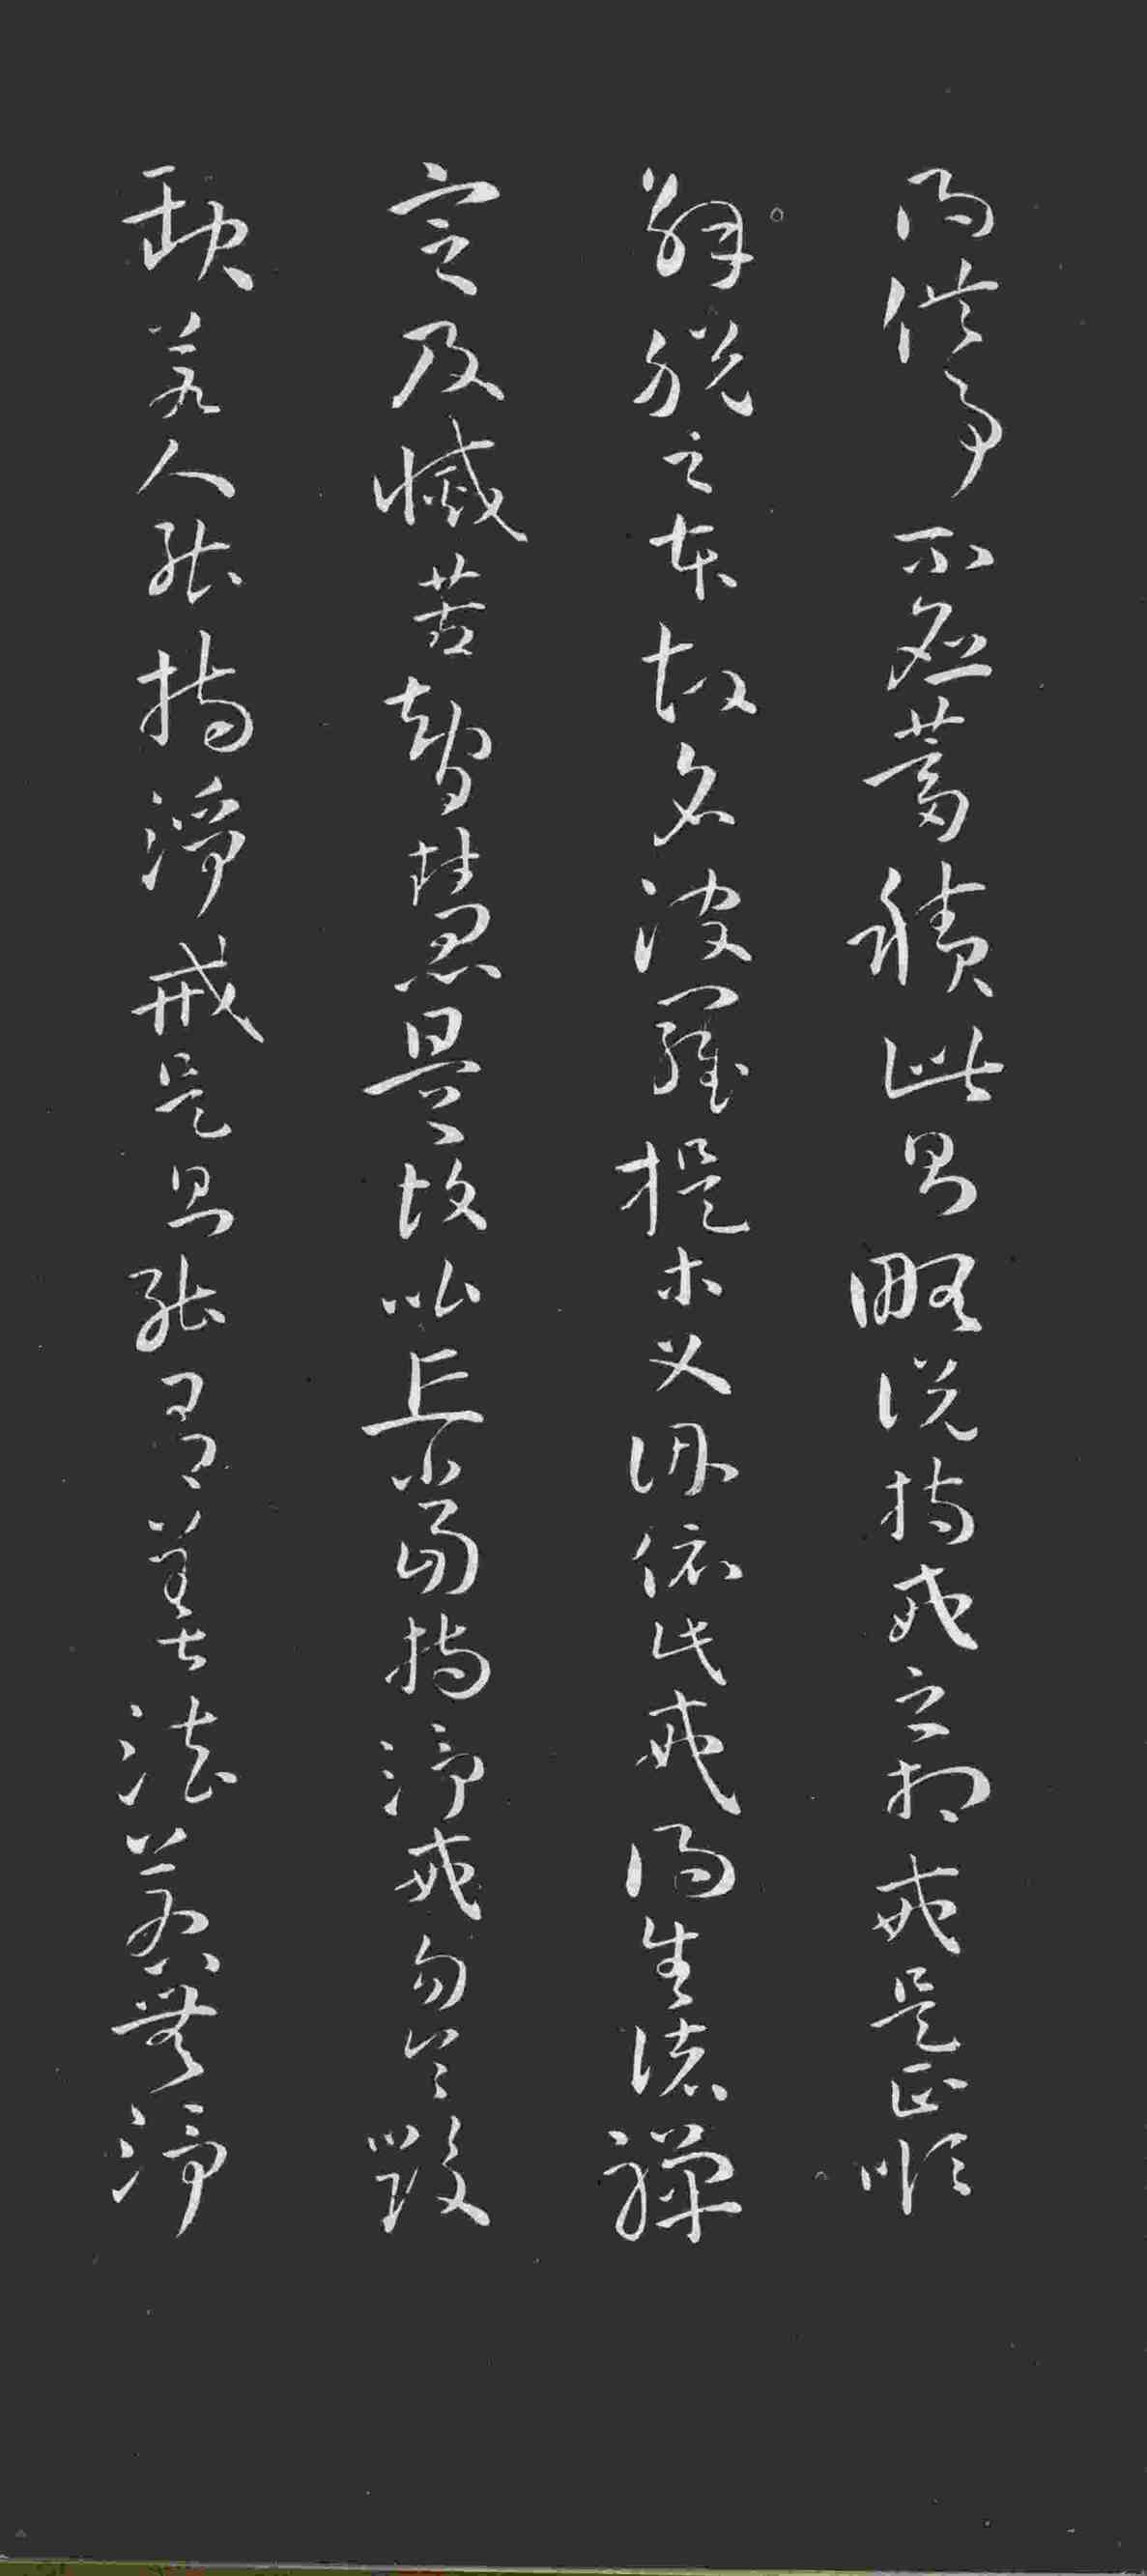 得供事不应蓄積此則略说持戒之相戒是正順
解脱之本故名波羅提木叉因依此戒得生诸禪
定及滅苦智慧是故比丘當持淨戒勿令毀
缺若人能持淨戒是則能有善法若無淨